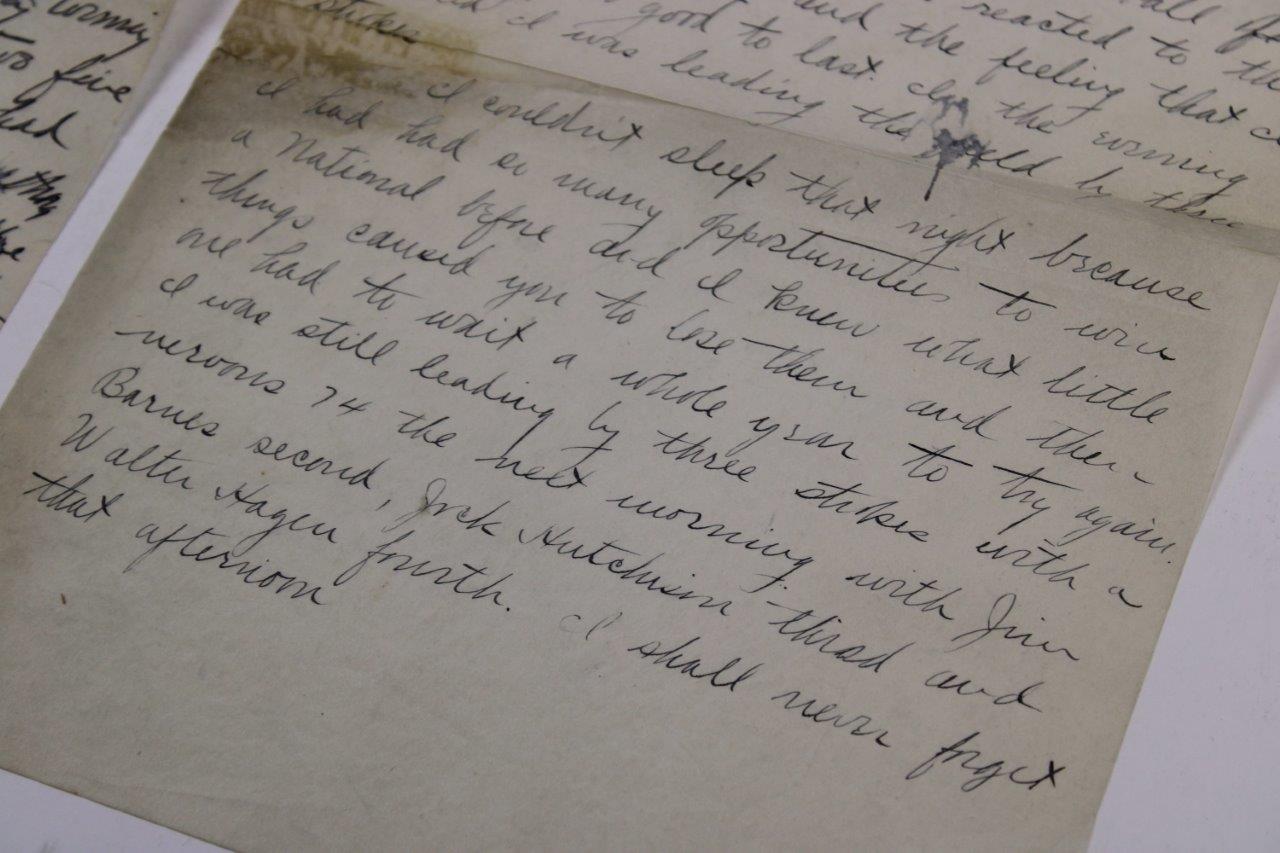 g evening
two five
had
all of
reacted to the
and the feeling that
good to last. the evening
I was leading the by three
strokes
I couldn't sleep that night because
I had had so many opportunities to win
a National before and I knew what little
things caused you to lose them and then
one had to wait a whole year to try again.
I was still leading by three strokes with a
nervous 74 the next morning with Jim
Barnes second, Jock Hutchison third and
Walter Hagen fourth. I shall never forget
that afternoon